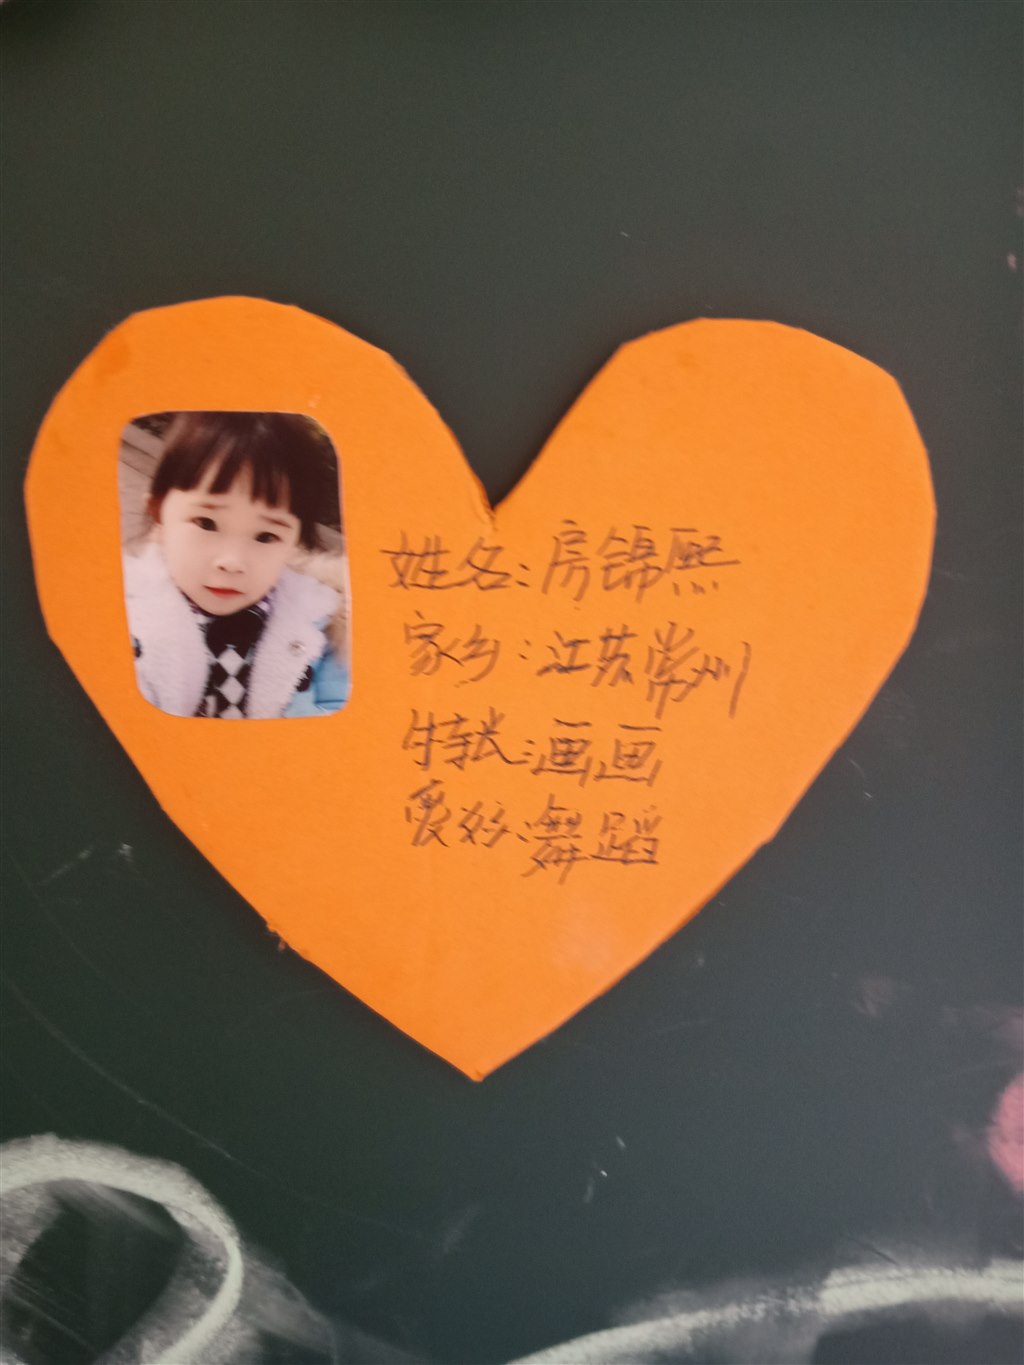 姓名:房锦熙
家乡:江苏常州
特长:画画
爱好:舞蹈